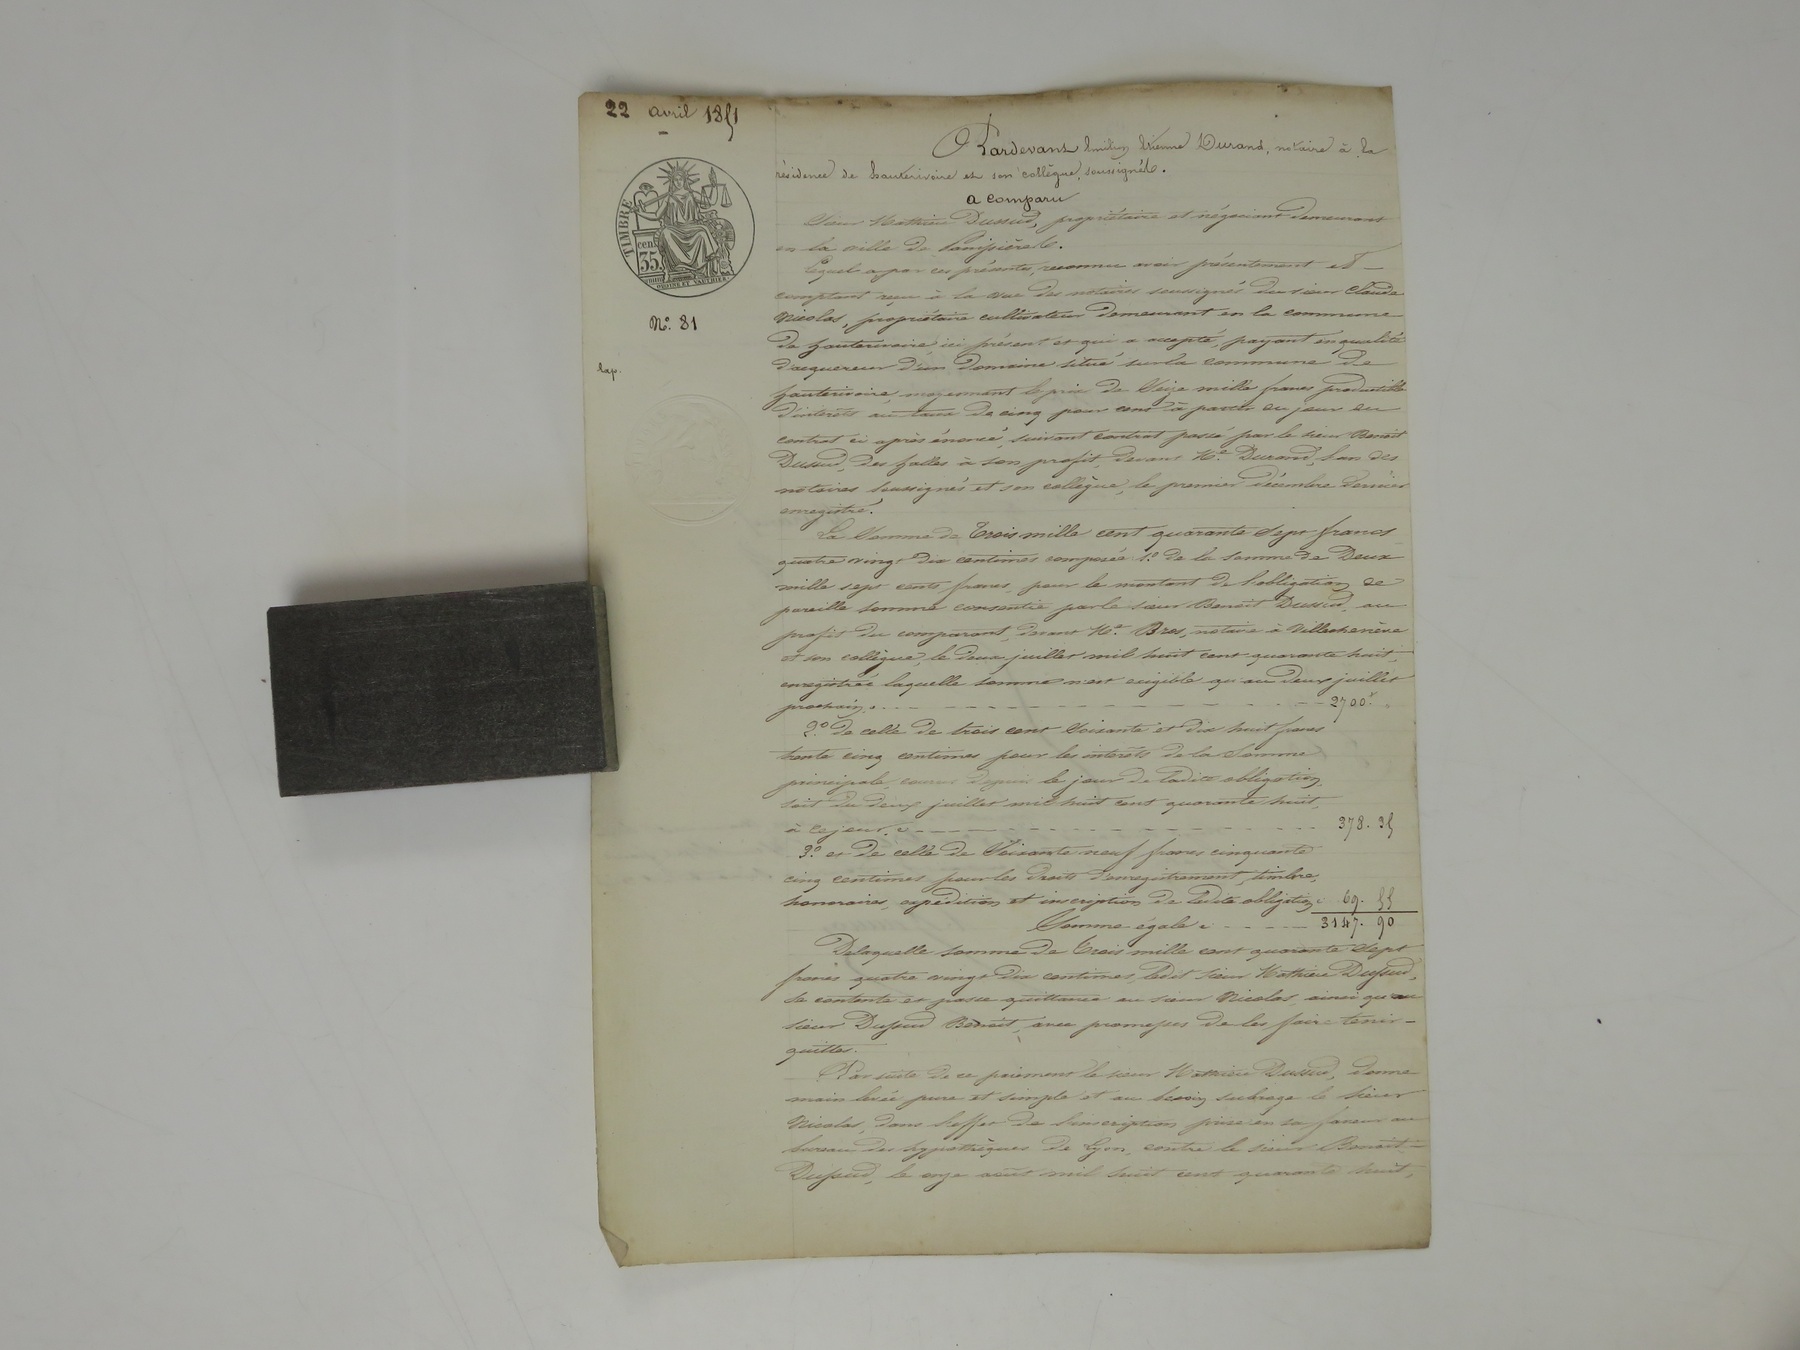 22 avril 1851
Pardevant Emilien Etienne Durand, notaire à la
résidence de hauterivoire et son collègue, soussignés.
a comparu
Sieur Mathieu Dussud, propriétaire et négociant demeurant
en la ville de Panissières.
TIMBRE
35 cen.
N.º 81
Lequel a par ces présentes, reconnu avoir présentement et
comptant reçu à la vue des notaires soussignés du sieur Claude
Nicolas, propriétaire cultivateur demeurant en la commune
de hauterivoire, ici présent et qui a accepté, payant en qualité
d'acquereur d'un domaine situé sur la commune de
hauterivoire, moyennant le prix de Seize mille francs productible
d'intérêts au taux de cinq pour cent à partir du jour du
contrat ci après énoncé, suivant contrat passé par le sieur Benoit
Dussud, des halles à son profit, devant Me. Durand, l'un des
notaires soussignés et son collègue, le premier décembre dernier
enregistré.
La Somme de Trois mille cent quarante sept francs
quatre vingt dix centimes composée 1.º de la somme de Deux
mille sept cents francs, pour le montant de l'obligation de
pareille somme consentie par le sieur Benoit Dussud, au
profit du comparant, devant Me. Bres, notaire à Villechenève
et son collègue, le deux juillet mil huit cent quarante huit,
enregistrée laquelle somme n'est exigible qu'au deux juillet
prochain. 2700.f
2.º de celle de trois cent Soixante et dix huit francs
trente cinq centimes pour les intérêts de la Somme
principale, courus depuis le jour de ladite obligation,
soit du deux juillet mil huit cent quarante huit,
à ce jour. 378. 35
3.º et de celle de Soixante neuf francs cinquante
cinq centimes pour les droits d'enregistrement, timbre,
honoraires, expédition et inscription de ladite obligation 69. 55
Somme égale 3147. 90
De laquelle somme de Trois mille cent quarante Sept
francs quatre vingt dix centimes, ledit sieur Mathieu Dussud,
se contente et passe quittance au sieur Nicolas, ainsi qu'au
sieur Dussud Benoit, avec promesses de les faire tenir
quittes.
Par suite de ce paiement le sieur Mathieu Dussud, donne
main levée pure et simple et au besoin subroge le sieur
Nicolas, dans l'effet de l'inscription prise en sa faveur au
bureau des hypothèques de Lyon, contre le sieur Benoit
Dussud, le onze août mil huit cent quarante huit,